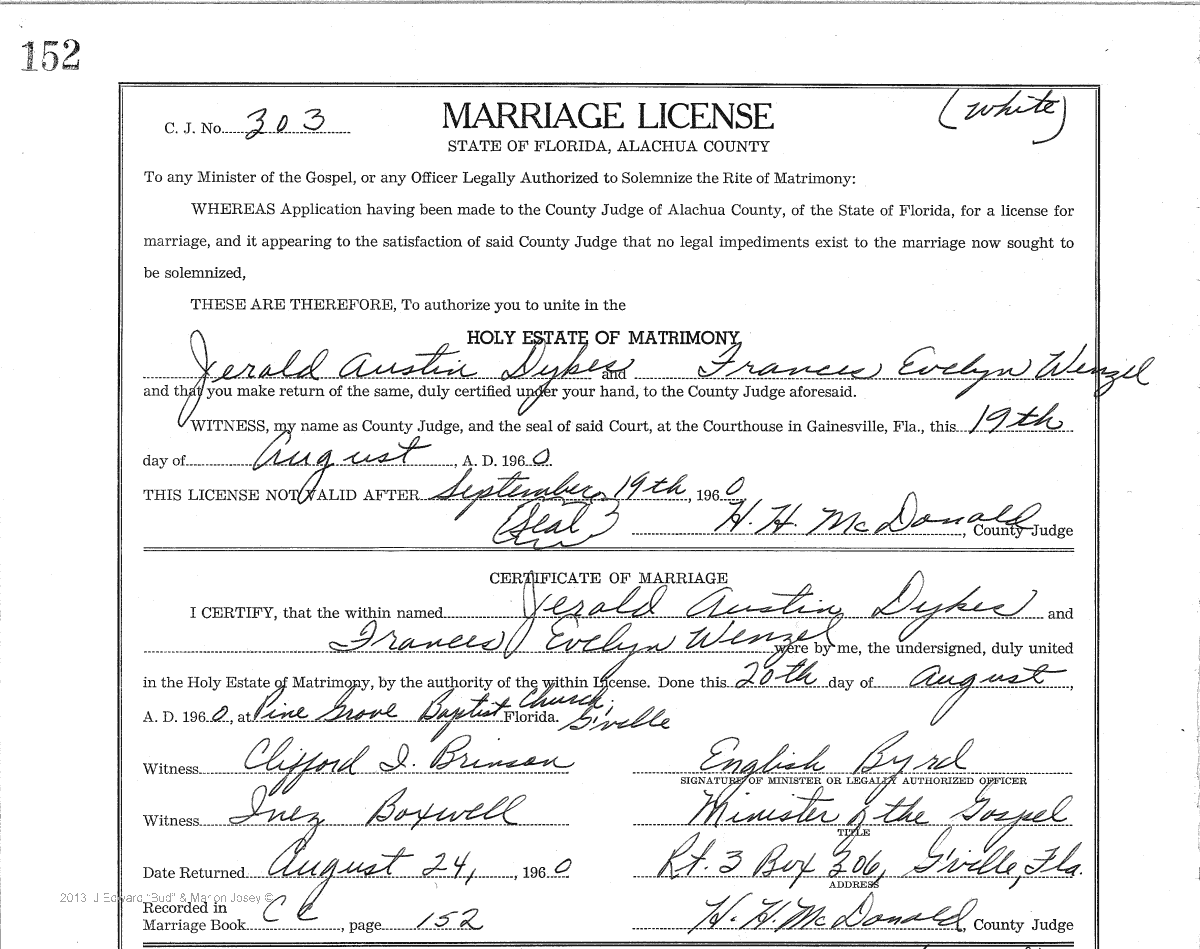 152
C. J. No. 303
MARRIAGE LICENSE
(White)
STATE OF FLORIDA, ALACHUA COUNTY
To any Minister of the Gospel, or any Officer Legally Authorized to Solemnize the Rite of Matrimony:
WHEREAS Application having been made to the County Judge of Alachua County, of the State of Florida, for a license for
marriage, and it appearing to the satisfaction of said County Judge that no legal impediments exist to the marriage now sought to
be solemnized,
THESE ARE THEREFORE, To authorize you to unite in the
HOLY ESTATE OF MATRIMONY
Jerald Austin Dykes and Frances Evelyn Wenzel
and that you make return of the same, duly certified under your hand, to the County Judge aforesaid.
WITNESS, my name as County Judge, and the seal of said Court, at the Courthouse in Gainesville, Fla., this 19th
day of August, A. D. 1960.
THIS LICENSE NOT VALID AFTER September 19th, 1960
(Seal) H. H. McDonald, County Judge
CERTIFICATE OF MARRIAGE
I CERTIFY, that the within named Jerald Austin Dykes and
Frances Evelyn Wenzel were by me, the undersigned, duly united
in the Holy Estate of Matrimony, by the authority of the within License. Done this 20th day of August,
A. D. 1960, at Pine Grove Baptist Church, Florida. G'ville
Witness Clifford I. Brinson English Byrd
SIGNATURE OF MINISTER OR LEGALLY AUTHORIZED OFFICER
Witness Inez Boxwell Minister of the Gospel
TITLE
Date Returned August 24, 1960 Rt. 3 Box 306, G'ville, Fla.
ADDRESS
2013 J Edward "Bud" & Marion Josey ©
Recorded in
Marriage Book CC, page 152 H. H. McDonald, County Judge